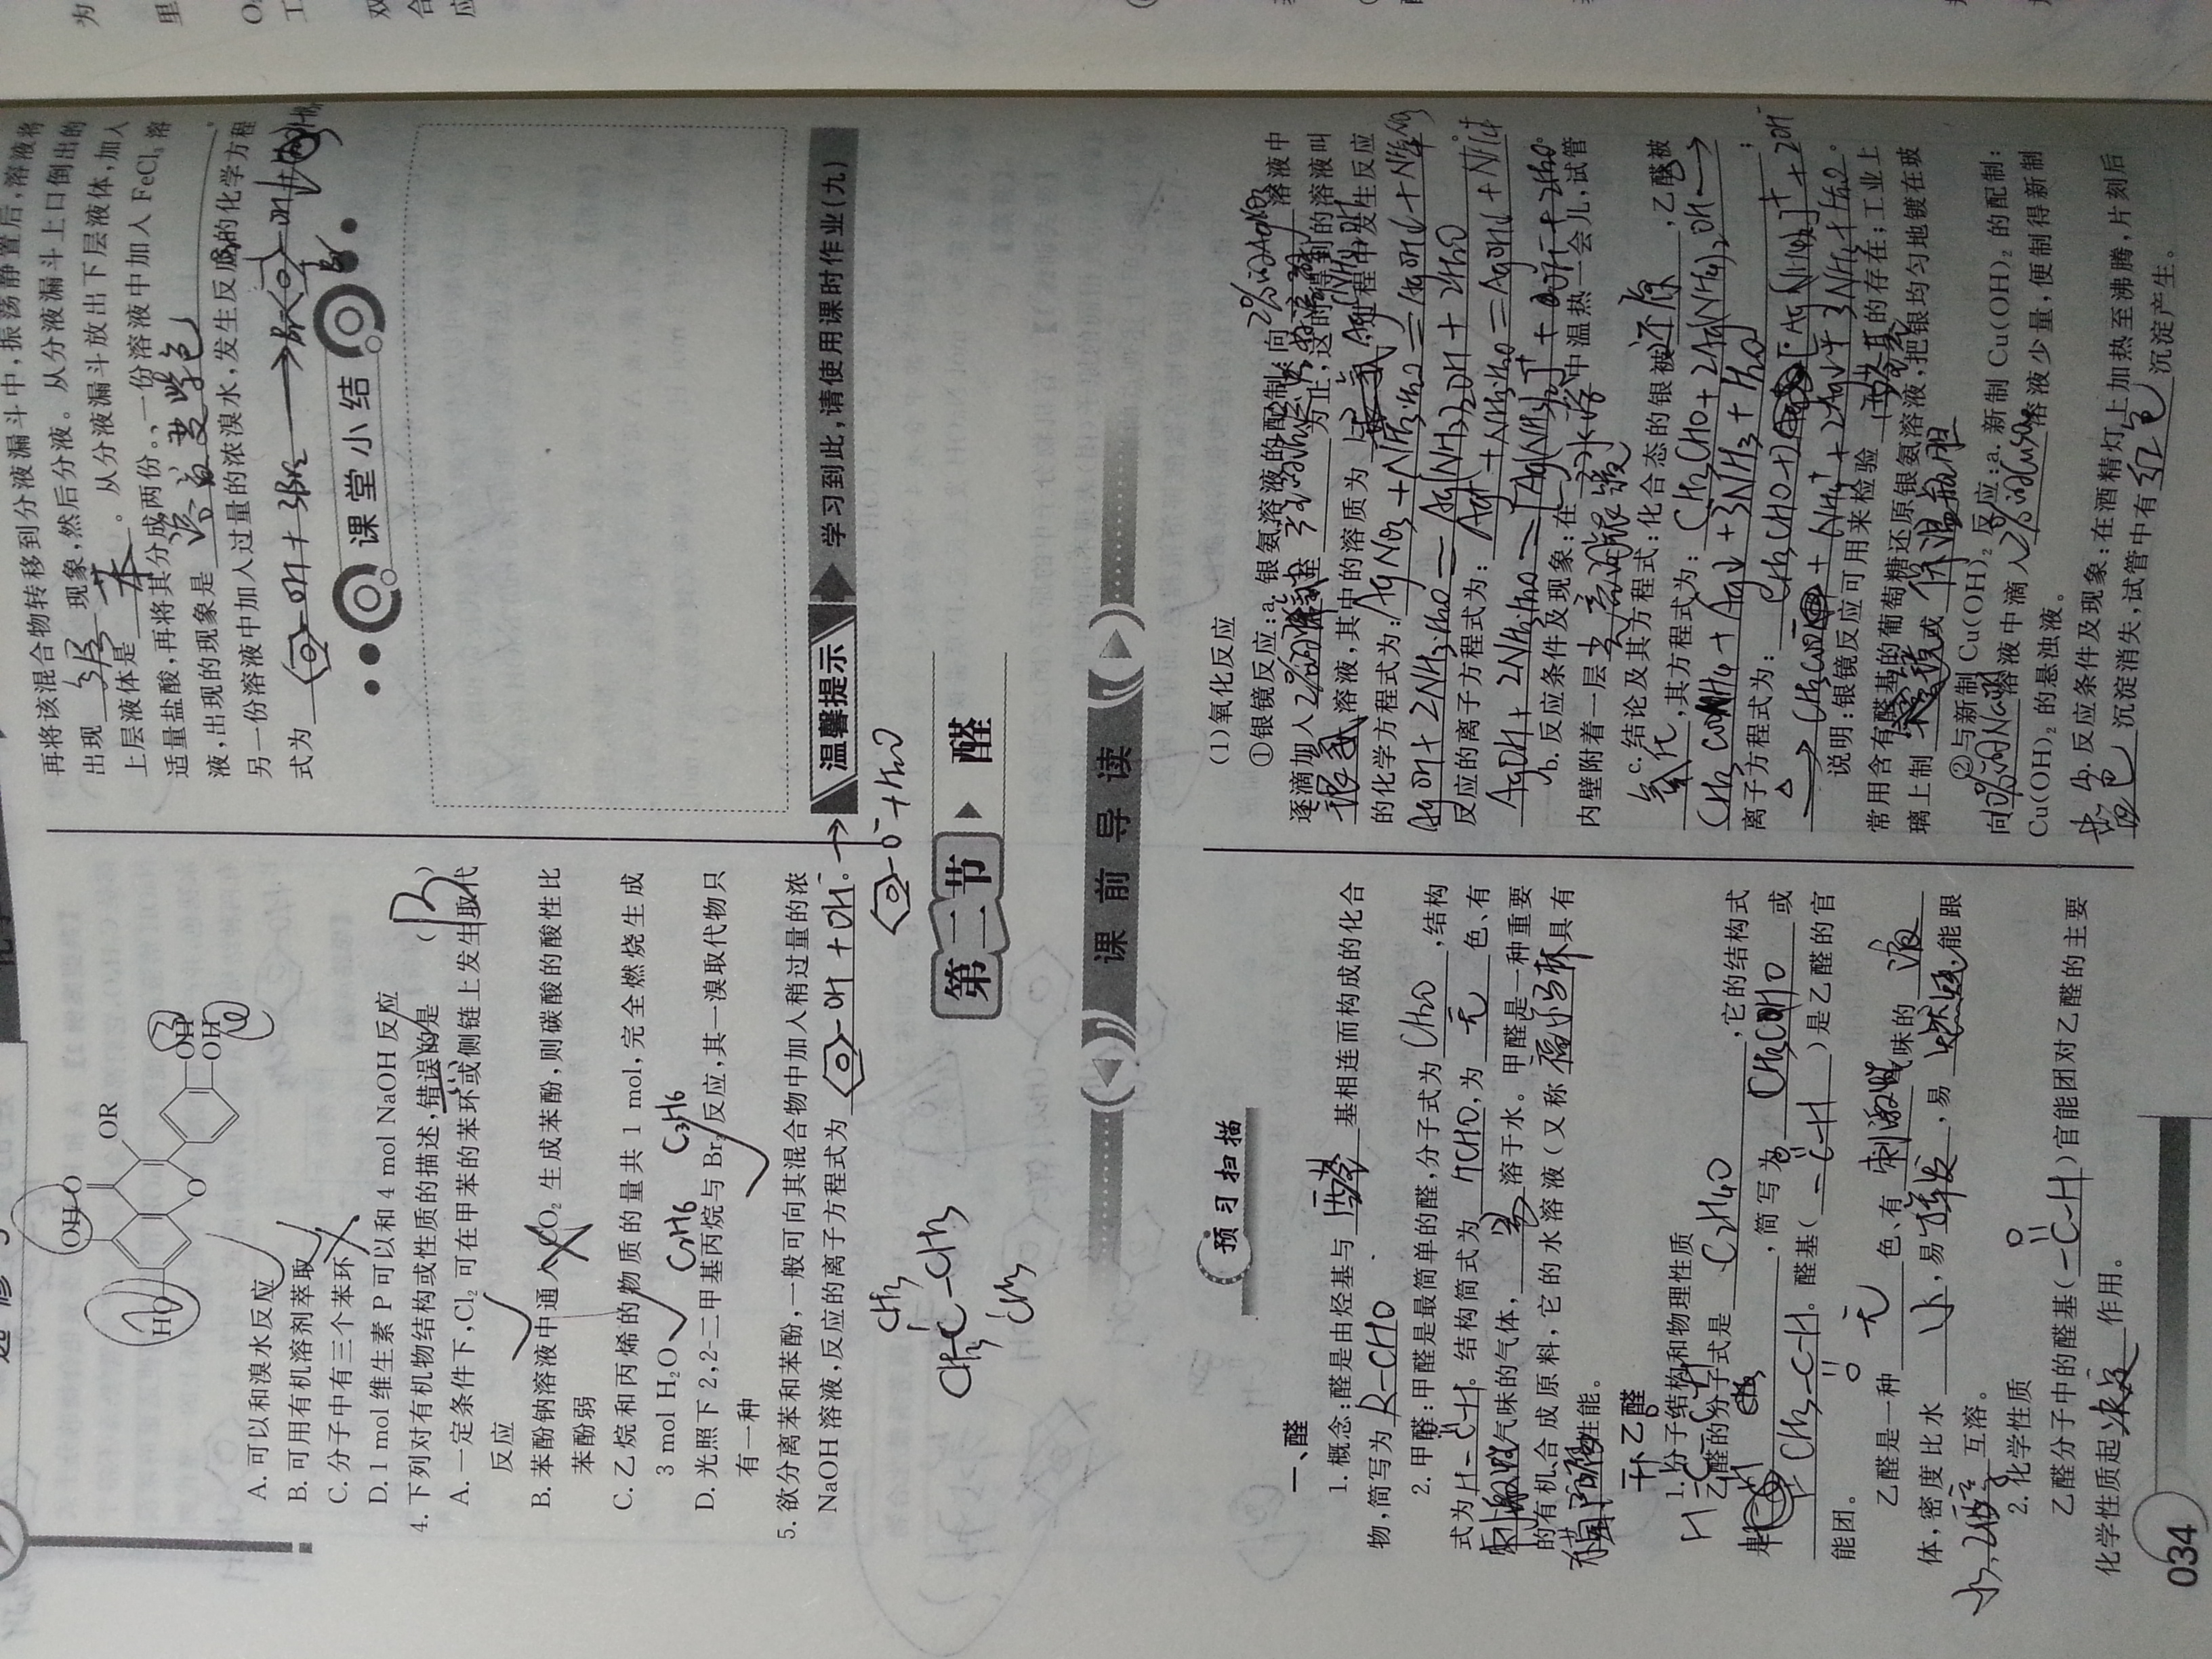 选修5
OH O
OR
HO
O
OH
OH
A. 可以和溴水反应
B. 可用有机溶剂萃取
C. 分子中有三个苯环
D. 1 mol 维生素 P 可以和 4 mol NaOH 反应
4. 下列对有机物结构或性质的描述,错误的是 (B)
A. 一定条件下,Cl₂ 可在甲苯的苯环或侧链上发生取代
反应
B. 苯酚钠溶液中通入 CO₂ 生成苯酚,则碳酸的酸性比
苯酚弱
C. 乙烷和丙烯的物质的量共 1 mol,完全燃烧生成
3 mol H₂O
C₂H₆ C₃H₆
D. 光照下 2,2-二甲基丙烷与 Br₂ 反应,其一溴取代物只
有一种
5. 欲分离苯和苯酚,一般可向其混合物中加入稍过量的浓
NaOH 溶液,反应的离子方程式为 -OH + OH⁻ →
-O⁻ + H₂O
CH₃
CH₃-C-CH₃
CH₃
再将该混合物转移到分液漏斗中,振荡静置后,溶液将
出现 分层 现象,然后分液。从分液漏斗上口倒出的
上层液体是 苯 。从分液漏斗放出下层液体,加入
适量盐酸,再将其分成两份。一份溶液中加入 FeCl₃ 溶
液,出现的现象是 溶液变紫色 。
另一份溶液中加入过量的浓溴水,发生反应的化学方程
式为 -OH + 3Br₂ → Br -OH↓ + 3HBr
Br
Br
课堂小结
温馨提示 学习到此,请使用课时作业(九)
第二节 醛
课前导读
预习扫描
一、醛
1. 概念:醛是由烃基与 醛 基相连而构成的化合
物,简写为 R-CHO
2. 甲醛:甲醛是最简单的醛,分子式为 CH₂O ,结构
式为 H-C-H 。结构简式为 HCHO ,为 无 色、有
刺激性 气味的气体, 易 溶于水。甲醛是一种重要
的有机合成原料,它的水溶液(又称 福尔马林 具有
杀菌防腐 性能。
二、乙醛
1. 分子结构和物理性质
乙醛的分子式是 C₂H₄O ,它的结构式
是 ,简写为 CH₃CHO 或
CH₃-C-H 。醛基( -C-H )是乙醛的官
O
能团。
乙醛是一种 无 色、有 刺激性 气味的 液
体,密度比水 小 ,易 挥发 ,易 燃烧 ,能跟
水、乙醇 互溶。
2. 化学性质
O
乙醛分子中的醛基( -C-H )官能团对乙醛的主要
化学性质起 决定 作用。
034
(1)氧化反应
①银镜反应:a. 银氨溶液的配制:向 2%的AgNO₃ 溶液中
逐滴加入 2%的 至 为止,这时得到的溶液叫
银氨 溶液,其中的溶质为 Ag(NH₃)₂OH ,过程中发生反应
的化学方程式为: AgNO₃ + NH₃·H₂O = AgOH↓ + NH₄NO₃
AgOH + 2NH₃·H₂O = Ag(NH₃)₂OH + 2H₂O 。
反应的离子方程式为: Ag⁺ + NH₃·H₂O = AgOH↓ + NH₄⁺
AgOH + 2NH₃·H₂O = [Ag(NH₃)₂]⁺ + OH⁻ + 2H₂O 。
b. 反应条件及现象:在 水浴 中温热一会儿,试管
内壁附着一层 光亮的银镜
c. 结论及其方程式:化合态的银被 还原 ,乙醛被
氧化 ,其方程式为: CH₃CHO + 2Ag(NH₃)₂OH △→
CH₃COONH₄ + Ag↓ + 3NH₃ + H₂O ;
离子方程式为: CH₃CHO + 2[Ag(NH₃)₂]⁺ + 2OH⁻
△→ CH₃COO⁻ + NH₄⁺ + 2Ag↓ + 3NH₃ + H₂O 。
说明:银镜反应可用来检验 醛基 的存在;工业上
常用含有醛基的葡萄糖还原银氨溶液,把银均匀地镀在玻
璃上制 镜 或 保温瓶胆
②与新制 Cu(OH)₂ 反应:a. 新制 Cu(OH)₂ 的配制:
向 10%的NaOH 溶液中滴入 2%的CuSO₄ 溶液少量,便制得新制
Cu(OH)₂ 的悬浊液。
b. 反应条件及现象:在酒精灯上加热至沸腾,片刻后
蓝色 沉淀消失,试管中有 红色 沉淀产生。